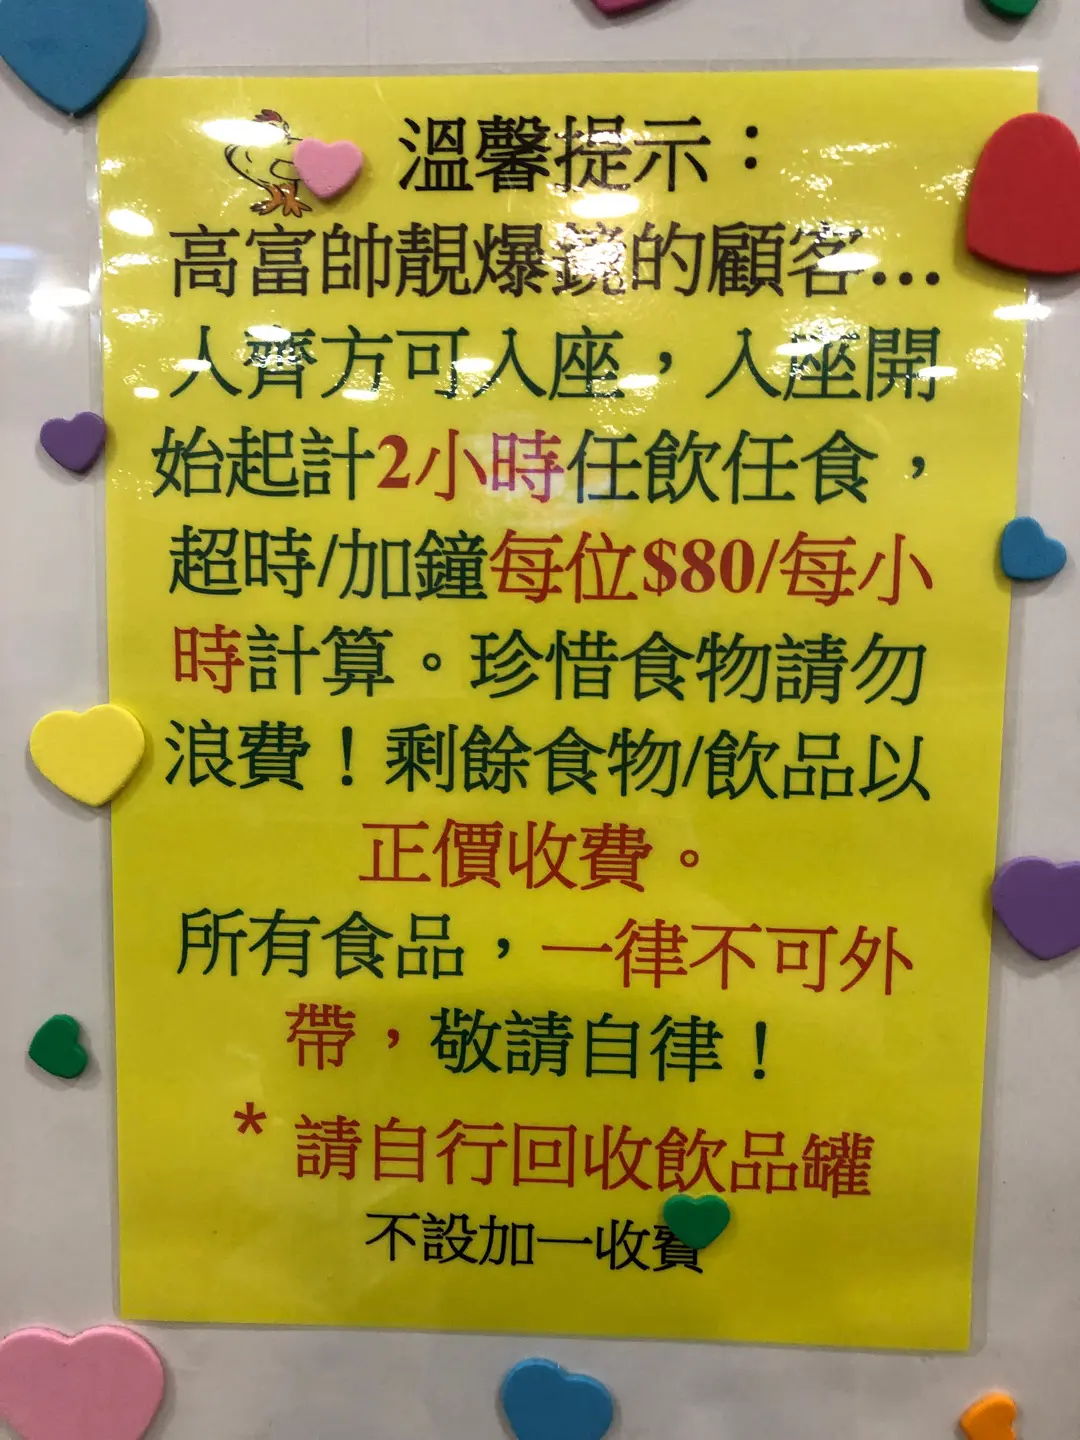 溫馨提示：
高富帥靚爆鏡的顧客...
人齊方可入座，入座開
始起計2小時任飲任食，
超時/加鐘每位$80/每小
時計算。珍惜食物請勿
浪費！剩餘食物/飲品以
正價收費。
所有食品，一律不可外
帶，敬請自律！
* 請自行回收飲品罐
不設加一收費